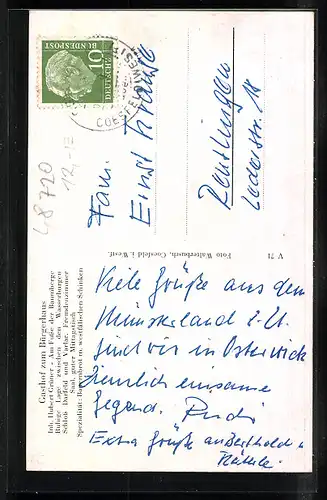 Gasthof zum Bürgerhaus
Inh. Hubert Grüner - Am Fuße der Baumberge
Ruhige Lage zwischen den Wasserburgen
Schloß Darfeld und Varlar, Fremdenzimmer
Saal, guter Mittagstisch
Spezialität: Bauernbrot m. westfälischen Schinken
Viele Grüße aus dem
Münsterland z. Zt.
sind wir in Osterwick
ziemlich einsame
Gegend. Rudi
Extra Grüße an Berthold u.
Foto Walterbusch, Coesfeld i. Westf.
V 71
DEUTSCHE
BUNDESPOST
10
COESFELD
Fam.
Ernst Krause
Reutlingen
Lederstr. 18
48720
12,-